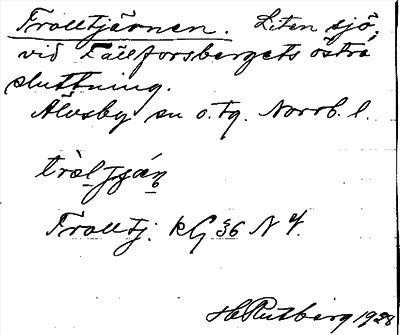 Trolltjärnen. Liten sjö,
vid Tällforsbergets östra
sluttning.
Älvsby sn o. tg. Norrb. l.
Trolltj. kG 36 N 4.
H Rutberg 1928